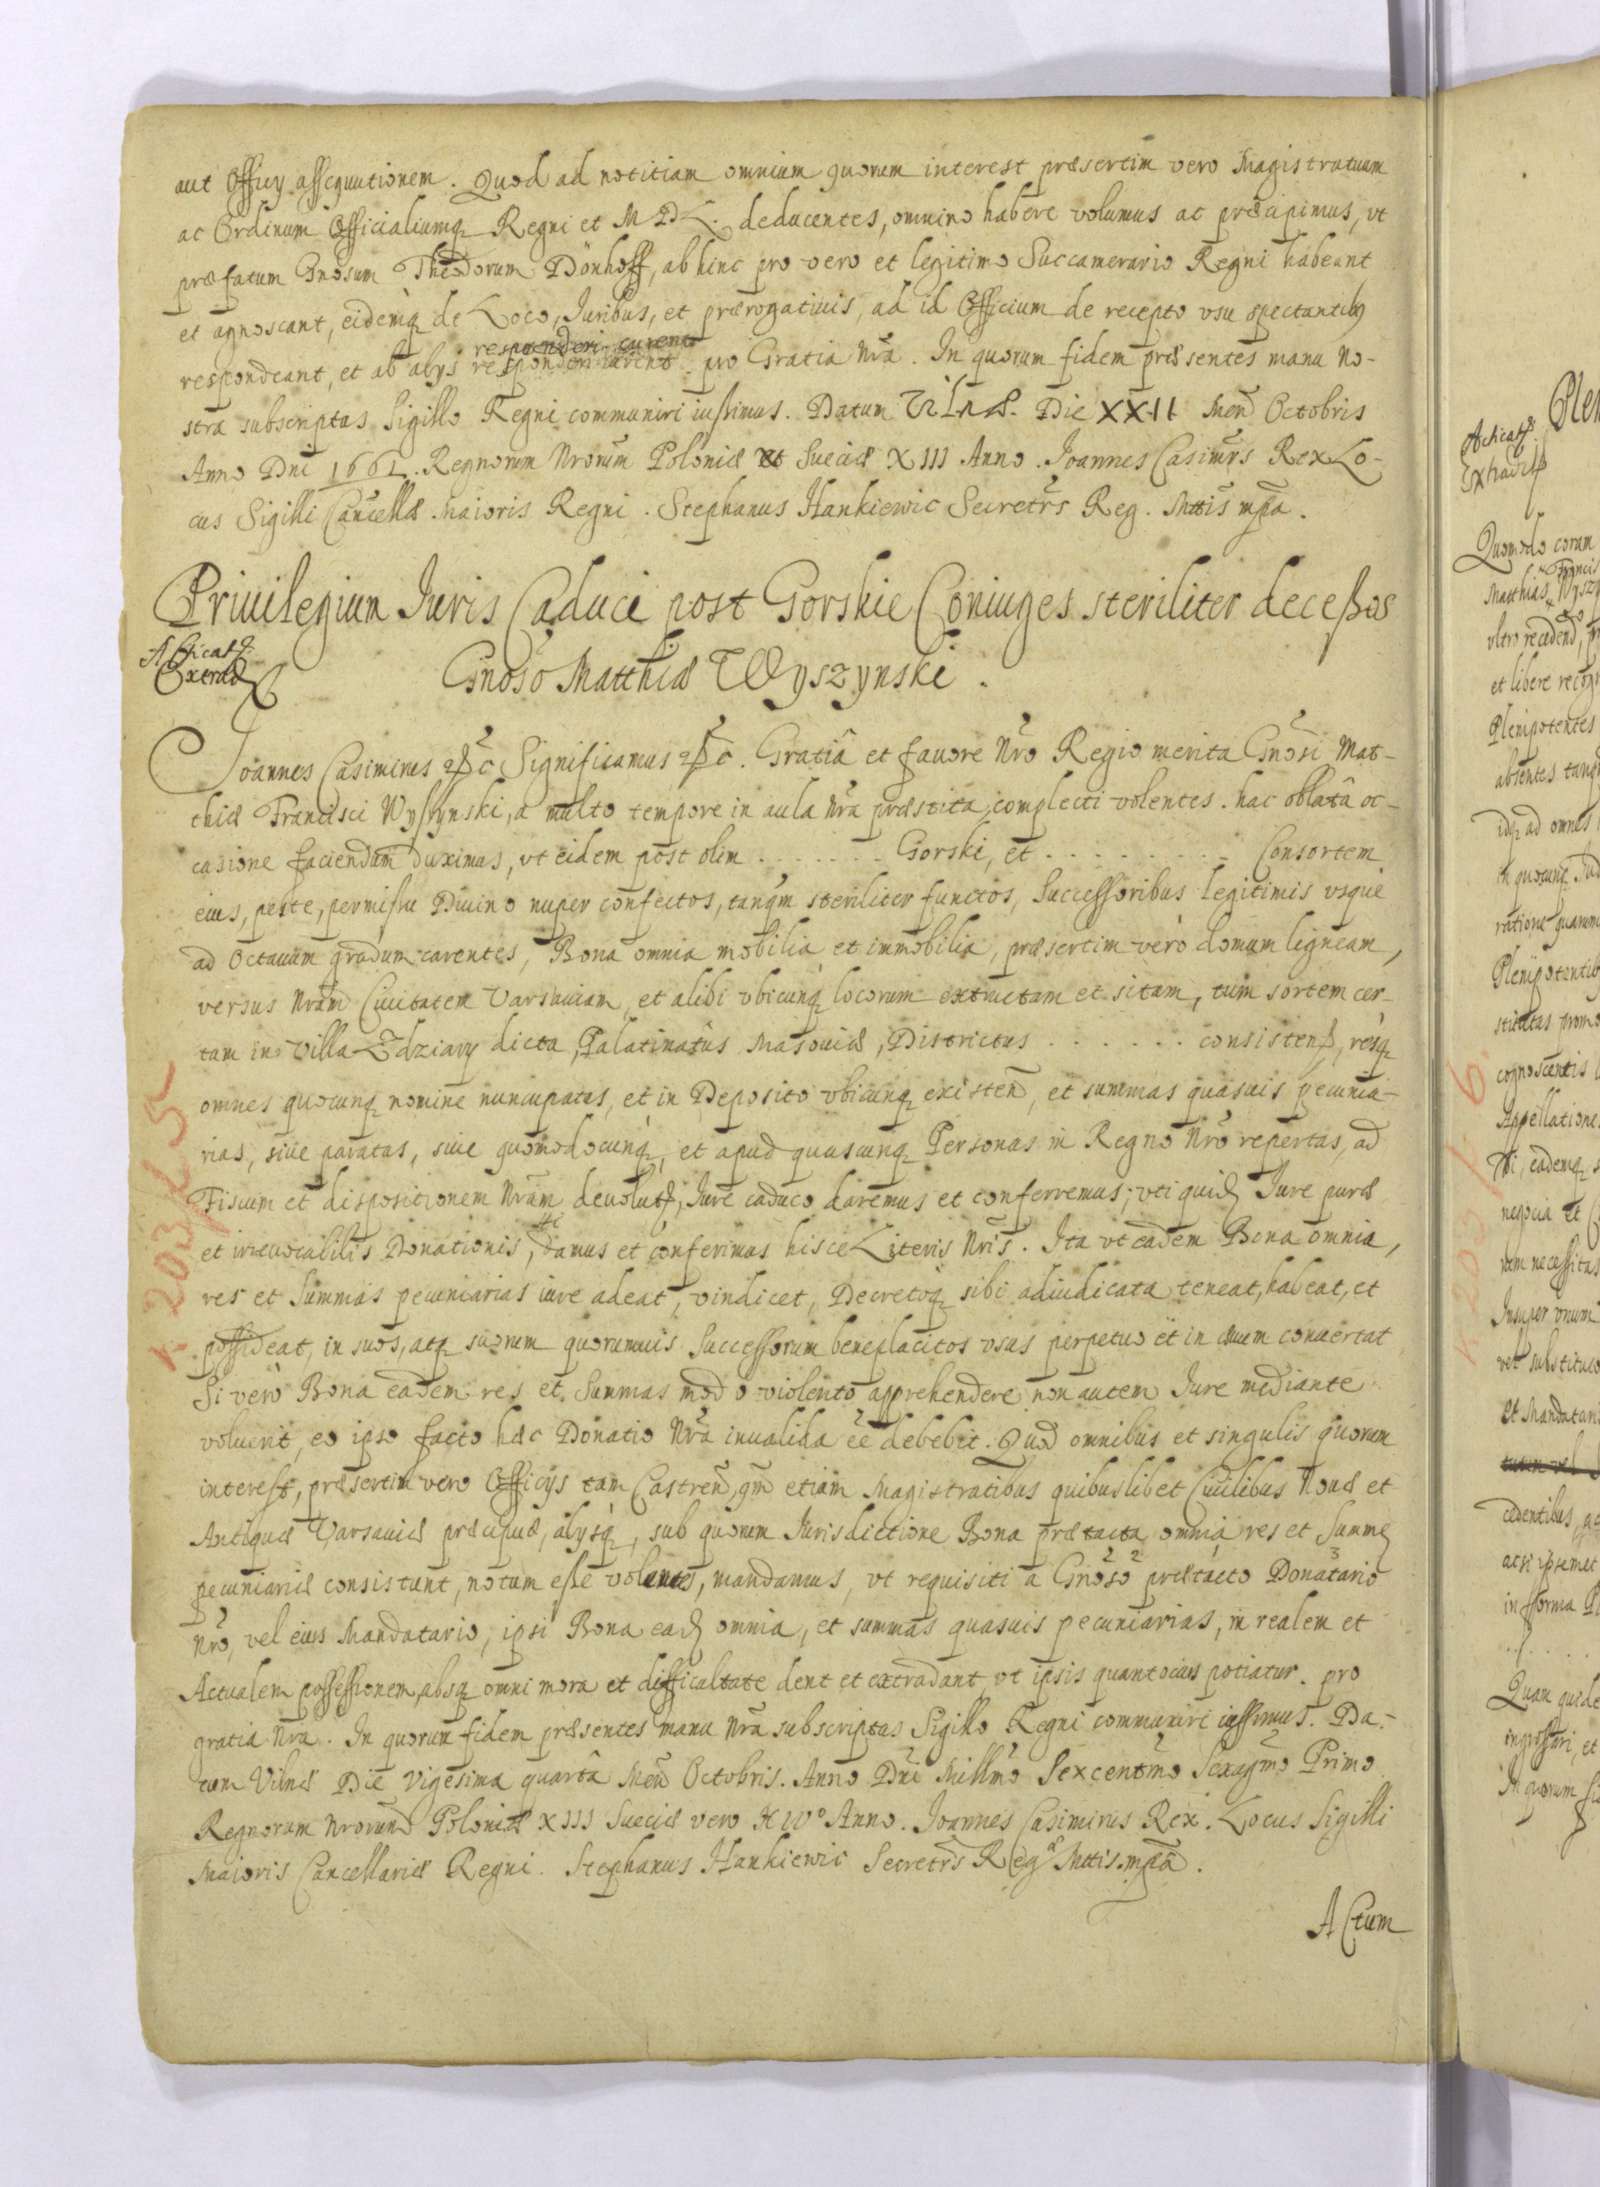 aut Officy assequutionem. Quod ad notitiam omnium quorum interest præsertim vero Magistratuum
ac Ordinum Officialiumq Regni et M D L. deducentes, omnino habere volumus ac præcipimus, vt
præfatum Gnosum Theodorum Dönhoff, ab hinc pro vero et legitimo Succamerario Regni habeant
et agnoscant, eidemq de Loco, Iuribus, et prærogatiuis, ad id Officium de recepto vsu spectantibus
responderi curent
respondeant, et ab alys responderi curent pro Gratia Nra. In quorum fidem præsentes manu no-
stra subscriptas Sigillo Regni communiri iussimus. Datum Vilnæ. Die XXII Men Octobris
Anno Dni 1661. Regnorum Nrorum Poloniæ et Sueciæ XIII Anno. Ioannes Casimirus Rex Lo-
cus Sigilli Cancellæ Maioris Regni. Stephanus Hankiewic Secretrs Reg. Mttis mpa.
Priuilegium Iuris Caduci post Gorskie Coniuges steriliter decessos
Gnoso Matthiæ Wyszynski.
Ioannes Casimirus &c Significamus &c. Gratiâ et fauore Nro Regio merita Gnosi Mat-
thiæ Francisci Wyszynski, a multo tempore in aula Nra præstita, complecti volentes. hac oblatâ oc-
casione faciendum duximus, vt eidem post olim . . . . . . . Gorski, et . . . . . . . . . Consortem
eius, peste, permissu Diuino nuper confectos, tanqm steriliter functos, Successoribus legitimis vsque
ad Octauum gradum carentes, Bona omnia mobilia et immobilia, præsertim verò domum ligneam,
versus Nram Ciuitatem Varsauiam, et alibi vbicunq locorum extructam et sitam, tum sortem cer-
tam in Villa Zdziary dicta, Palatinatûs Masouiæ, Districtus . . . . . . consisten, resq
omnes quocunq nomine nuncupatas, et in Deposito vbicunq existen, et summas quasuis pecunia-
rias, siue paratas, siue quomodocunq, et apud quascunq Personas in Regno Nro repertas, ad
Fiscum et dispositionem Nram deuolut, Iure caduco daremus et conferremus; vti quid Iure puræ
et irreuocabilis Donationis, damus et conferimus hisce Literis Nris. Ita vt eadem Bona omnia,
res et Summas pecuniarias iure adeat, vindicet, Decretoq sibi adiudicata teneat, habeat, et
possideat, in suos, atq suorum quorumuis Successorum beneplacitos vsus perpetuo et in æuum conuertat
Si verò Bona eadem res et Summas modo violento apprehendere non autem Iure mediante
voluerit, eo ipso facto hæc Donatio Nra inualida ee debebit. Quod omnibus et singulis quorum
interest, præsertim vero Officys tam Castren, qm etiam Magistratibus quibuslibet Ciuilibus Nouæ et
Antiquæ Varsauiæ præcipuè, alysq, sub quorum Iurisdictione Bona prætacta omnia res et Summæ
pecuniariæ consistunt, notum esse volentes, mandamus, vt requisiti a Gnoso prætacto Donatario
Nro, vel eius Mandatario, ipsi Bona ead omnia, et summas quasuis pecuniarias, in realem et
Actualem possessionem, absq omni mora et difficultate dent et extradant, vt ipsis quantocius potiatur. pro
gratia Nra. In quorum fidem præsentes manu Nra subscriptas Sigillo Regni communiri iussimus. Da-
tum Vilnæ Die Vigesima quartâ Men Octobris. Anno Dni Millmo Sexcentmo Sexagmo Primo
Regnorum Nrorum Poloniæ XIII Sueciæ vero XIVo Anno. Ioannes Casimirus Rex. Locus Sigilli
Maioris Cancellariæ Regni. Stephanus Hankiewic Secretrs Regæ Mttis mpa.
Actum